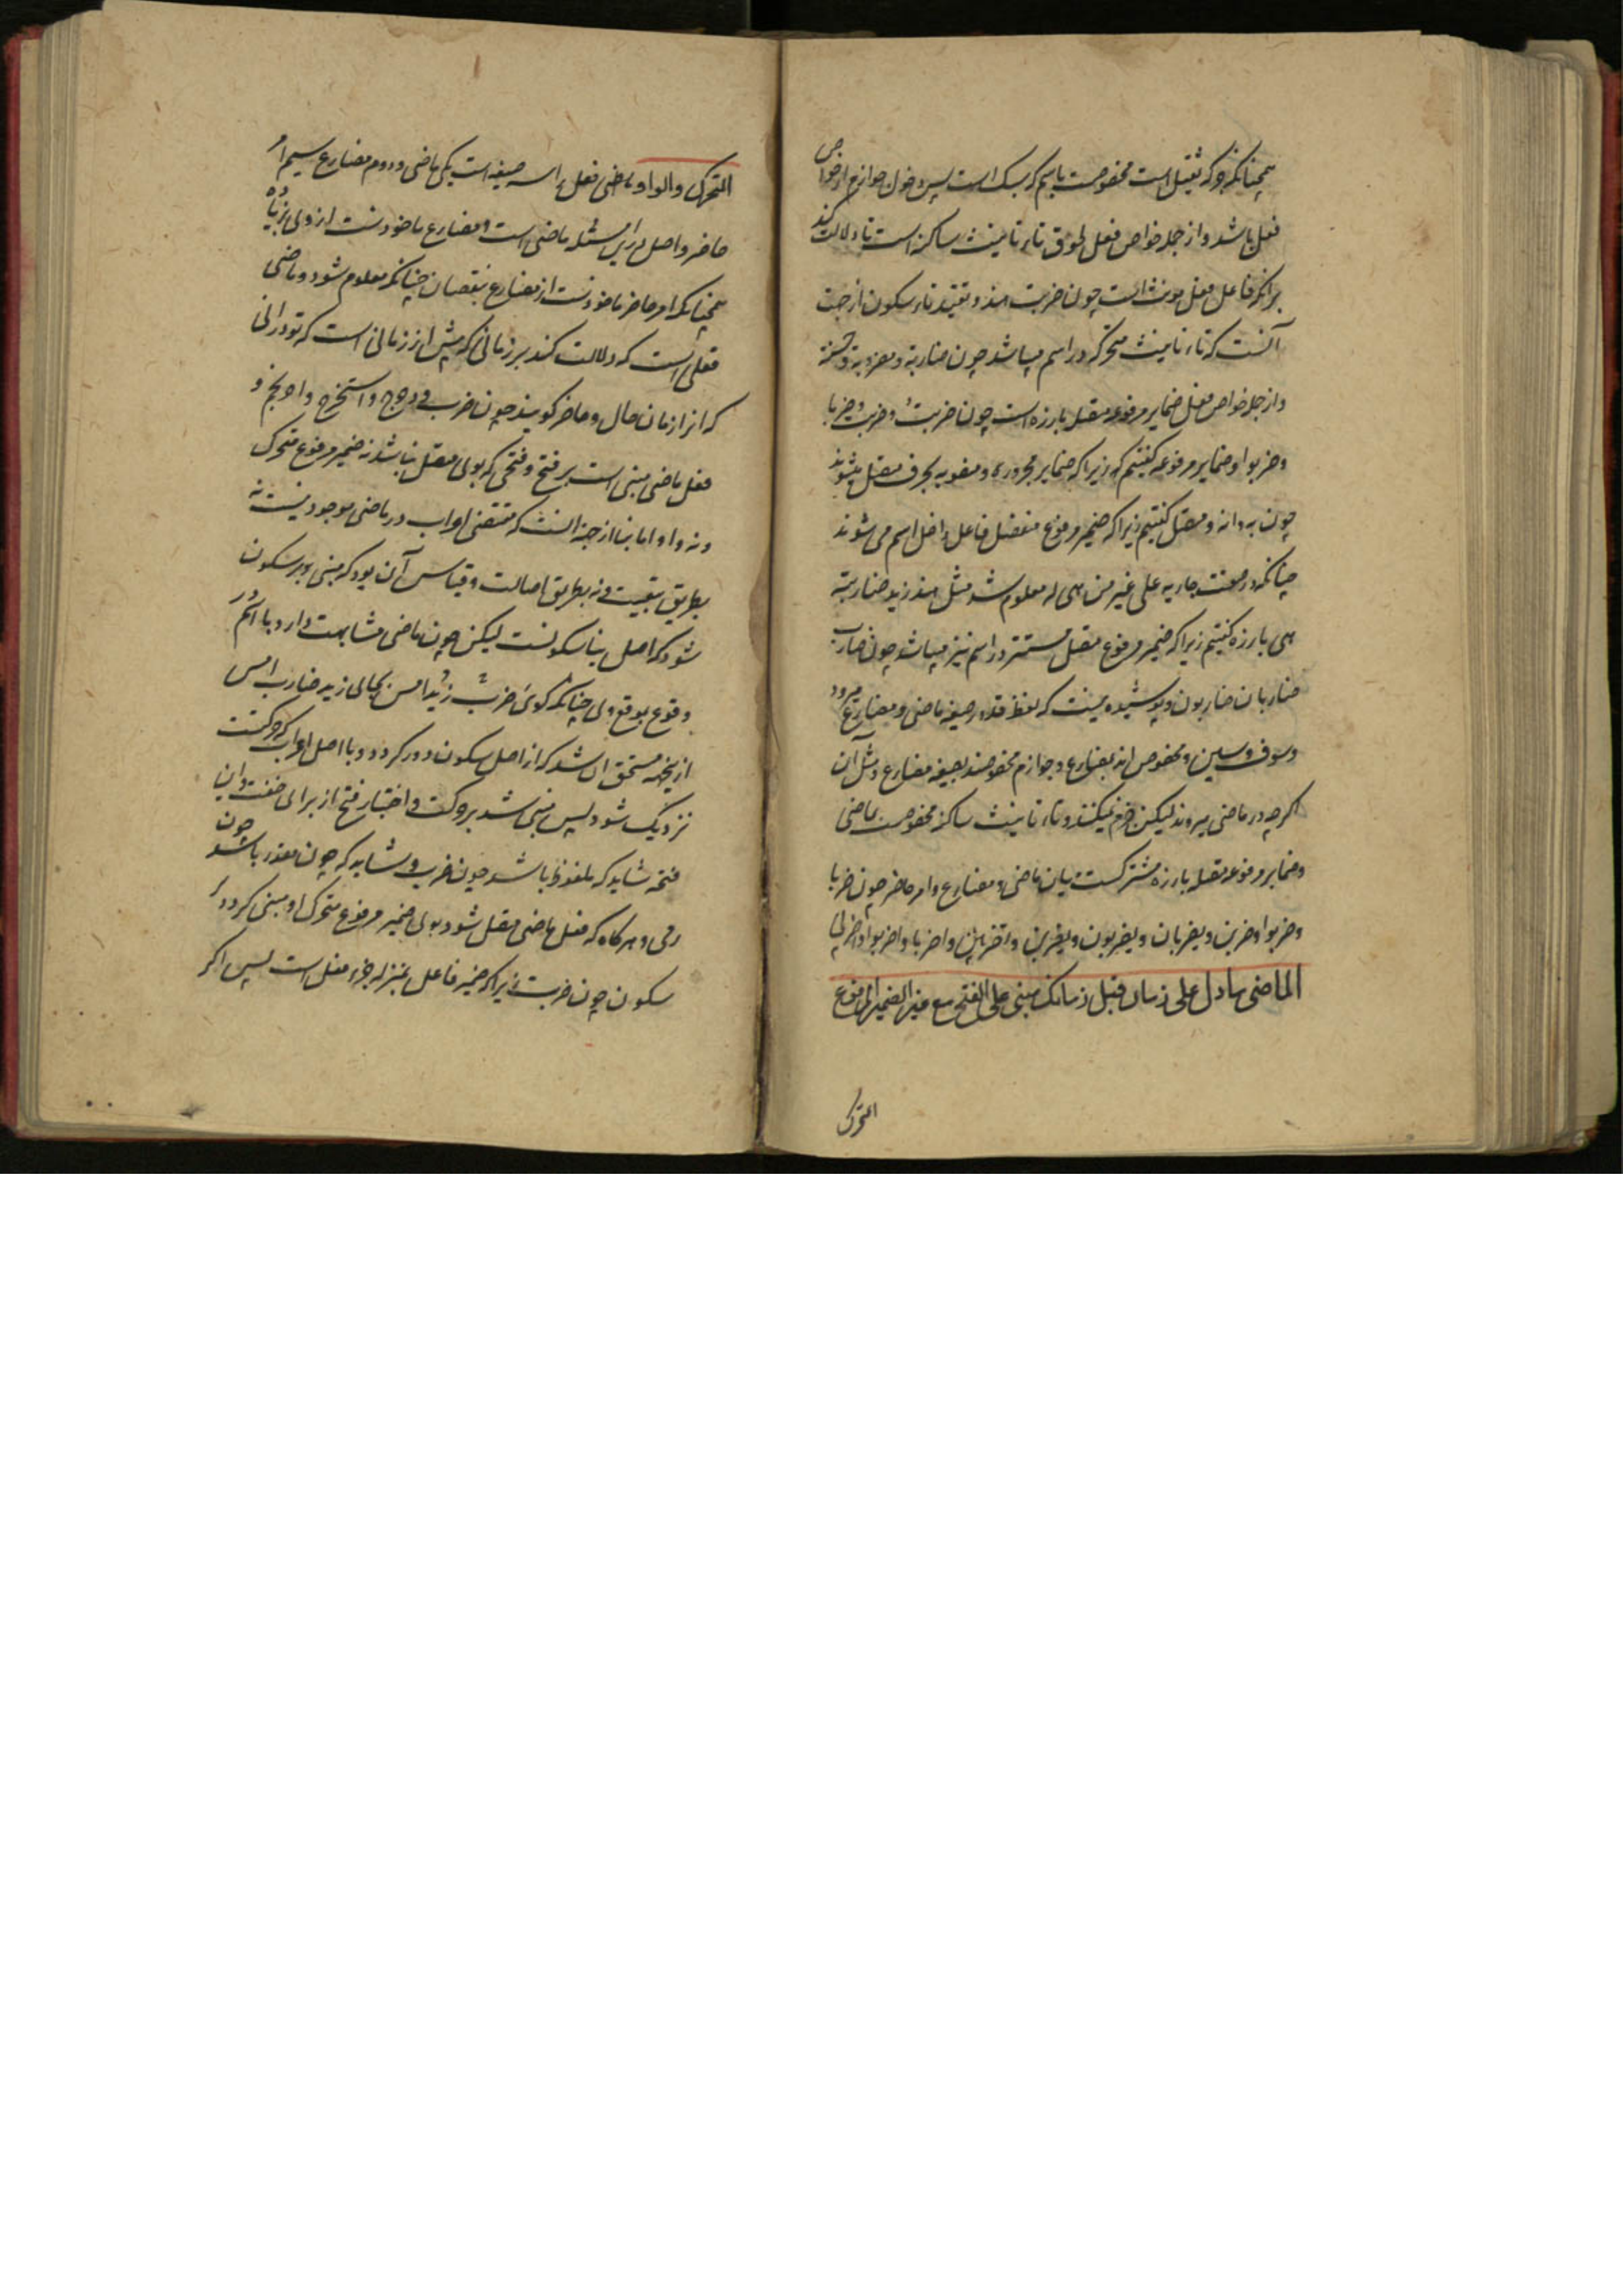 همچنانکه جر که ثقیل است مخصوصست باسم که سبک است پس دخول جوازم از خواص
فعل باشد و از جمله خواص فعل لحوق تاء تانیث ساکنه است تا دلالت کند
برانکه فاعل فعل مونث است چون ضربت هند و تقیید تاء بسکون از جهت
آنست که تاء تانیث متحرکه در اسم میباشد چون ضاربة و مضروبة و حسنة
و از جمله خواص فعل ضمایر مرفوعه متصله بارزه است چون ضربتُ و ضربتَ و ضربا
و ضربوا و ضمایر مرفوعه گفتیم که زیرا که ضمایر مجروره و منصوبه بحرف متصل میشوند
چون به و انه و متصل گفتیم زیرا که ضمیر مرفوع منفصل فاعل داخل اسم می شوند
چنانکه در صفت جاریه علی غیر من هی له معلوم شد مثل هند زید ضاربته
هی بارزه گفتیم زیرا که ضمیر مرفوع متصل مستتر در اسم نیز میباشد چون ضارب
ضاربان ضاربون و پوشیده نیست که لفظ قد در صیغه ماضی و مضارع میرود
و سوف و سین مخصوص اند بمضارع و جوازم مخصوصند بصیغه مضارع و مثل ان
اگرچه در ماضی میروند لیکن جزم نمیکنند و تاء تانیث ساکنه مخصوصست بماضی
و ضمایر مرفوعه متصله بارزه مشترکست میان ماضی و مضارع و امر حاضر چون ضربا
و ضربوا و ضربن و یضربان و یضربون و یضربن و تضربین و اضربا و اضربوا و اضربی
الماضی مادل علی زمان قبل زمانک مبنی علی الفتح مع غیر الضمیر المرفوع
المتحرک
المتحرک والواو ماضی فعل را سه صیغه است یکی ماضی و دوم مضارع سیم امر
حاضر و اصل در این مسئله ماضی است و مضارع ماخوذست از وی بزیاده
همچنانکه امر حاضر ماخوذست از مضارع بنقصان چنانکه معلوم شود و ماضی
فعلی است که دلالت کند بر زمانی که پیش از زمانی است که تو درانی
که انرا زمان حال و حاضر گویند چون ضرب و دحرج و استخرج و احرنجم و
فعل ماضی مبنی است بر فتح وقتی که بوی متصل نباشد نه ضمیر مرفوع متحرک
و نه واو اما بنا از جهة انست که مقتضی اعراب در ماضی موجود نیست نه
بطریق تبعیت و نه بطریق اصالت و قیاس آن بود که مبنی بر سکون
شود که اصل بنا سکونست لیکن چون ماضی مشابهت دارد با اسم در
وقوع بموقع وی چنانکه گوئی ضرب زیدٌ امس بجای زید ضارب امس
ازینجهت مستحق ان شد که از اصل سکون دور گردد و با اصل اعراب که حرکتست
نزدیک شود پس مبنی شد بر حرکت و اختیار فتح از برای خفت و این
فتحه شاید که ملفوظ باشد چون ضرب و شاید که مقدر باشد چون
رمی و هرگاه که فعل ماضی متصل شود بوی ضمیر مرفوع متحرک او مبنی گردد بر
سکون چون ضربت زیرا که ضمیر فاعل بمنزله جزء فعل است پس اگر